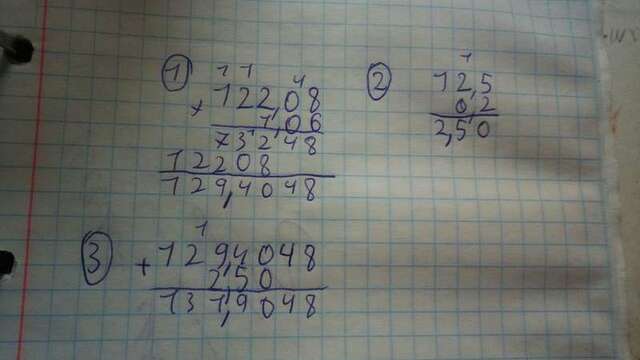 1
1 1 4
× 122,08
1,06
73248
12208
129,4048
2
1
12,5
0,2
2,50
3
1
+ 129,4048
2,50
131,9048